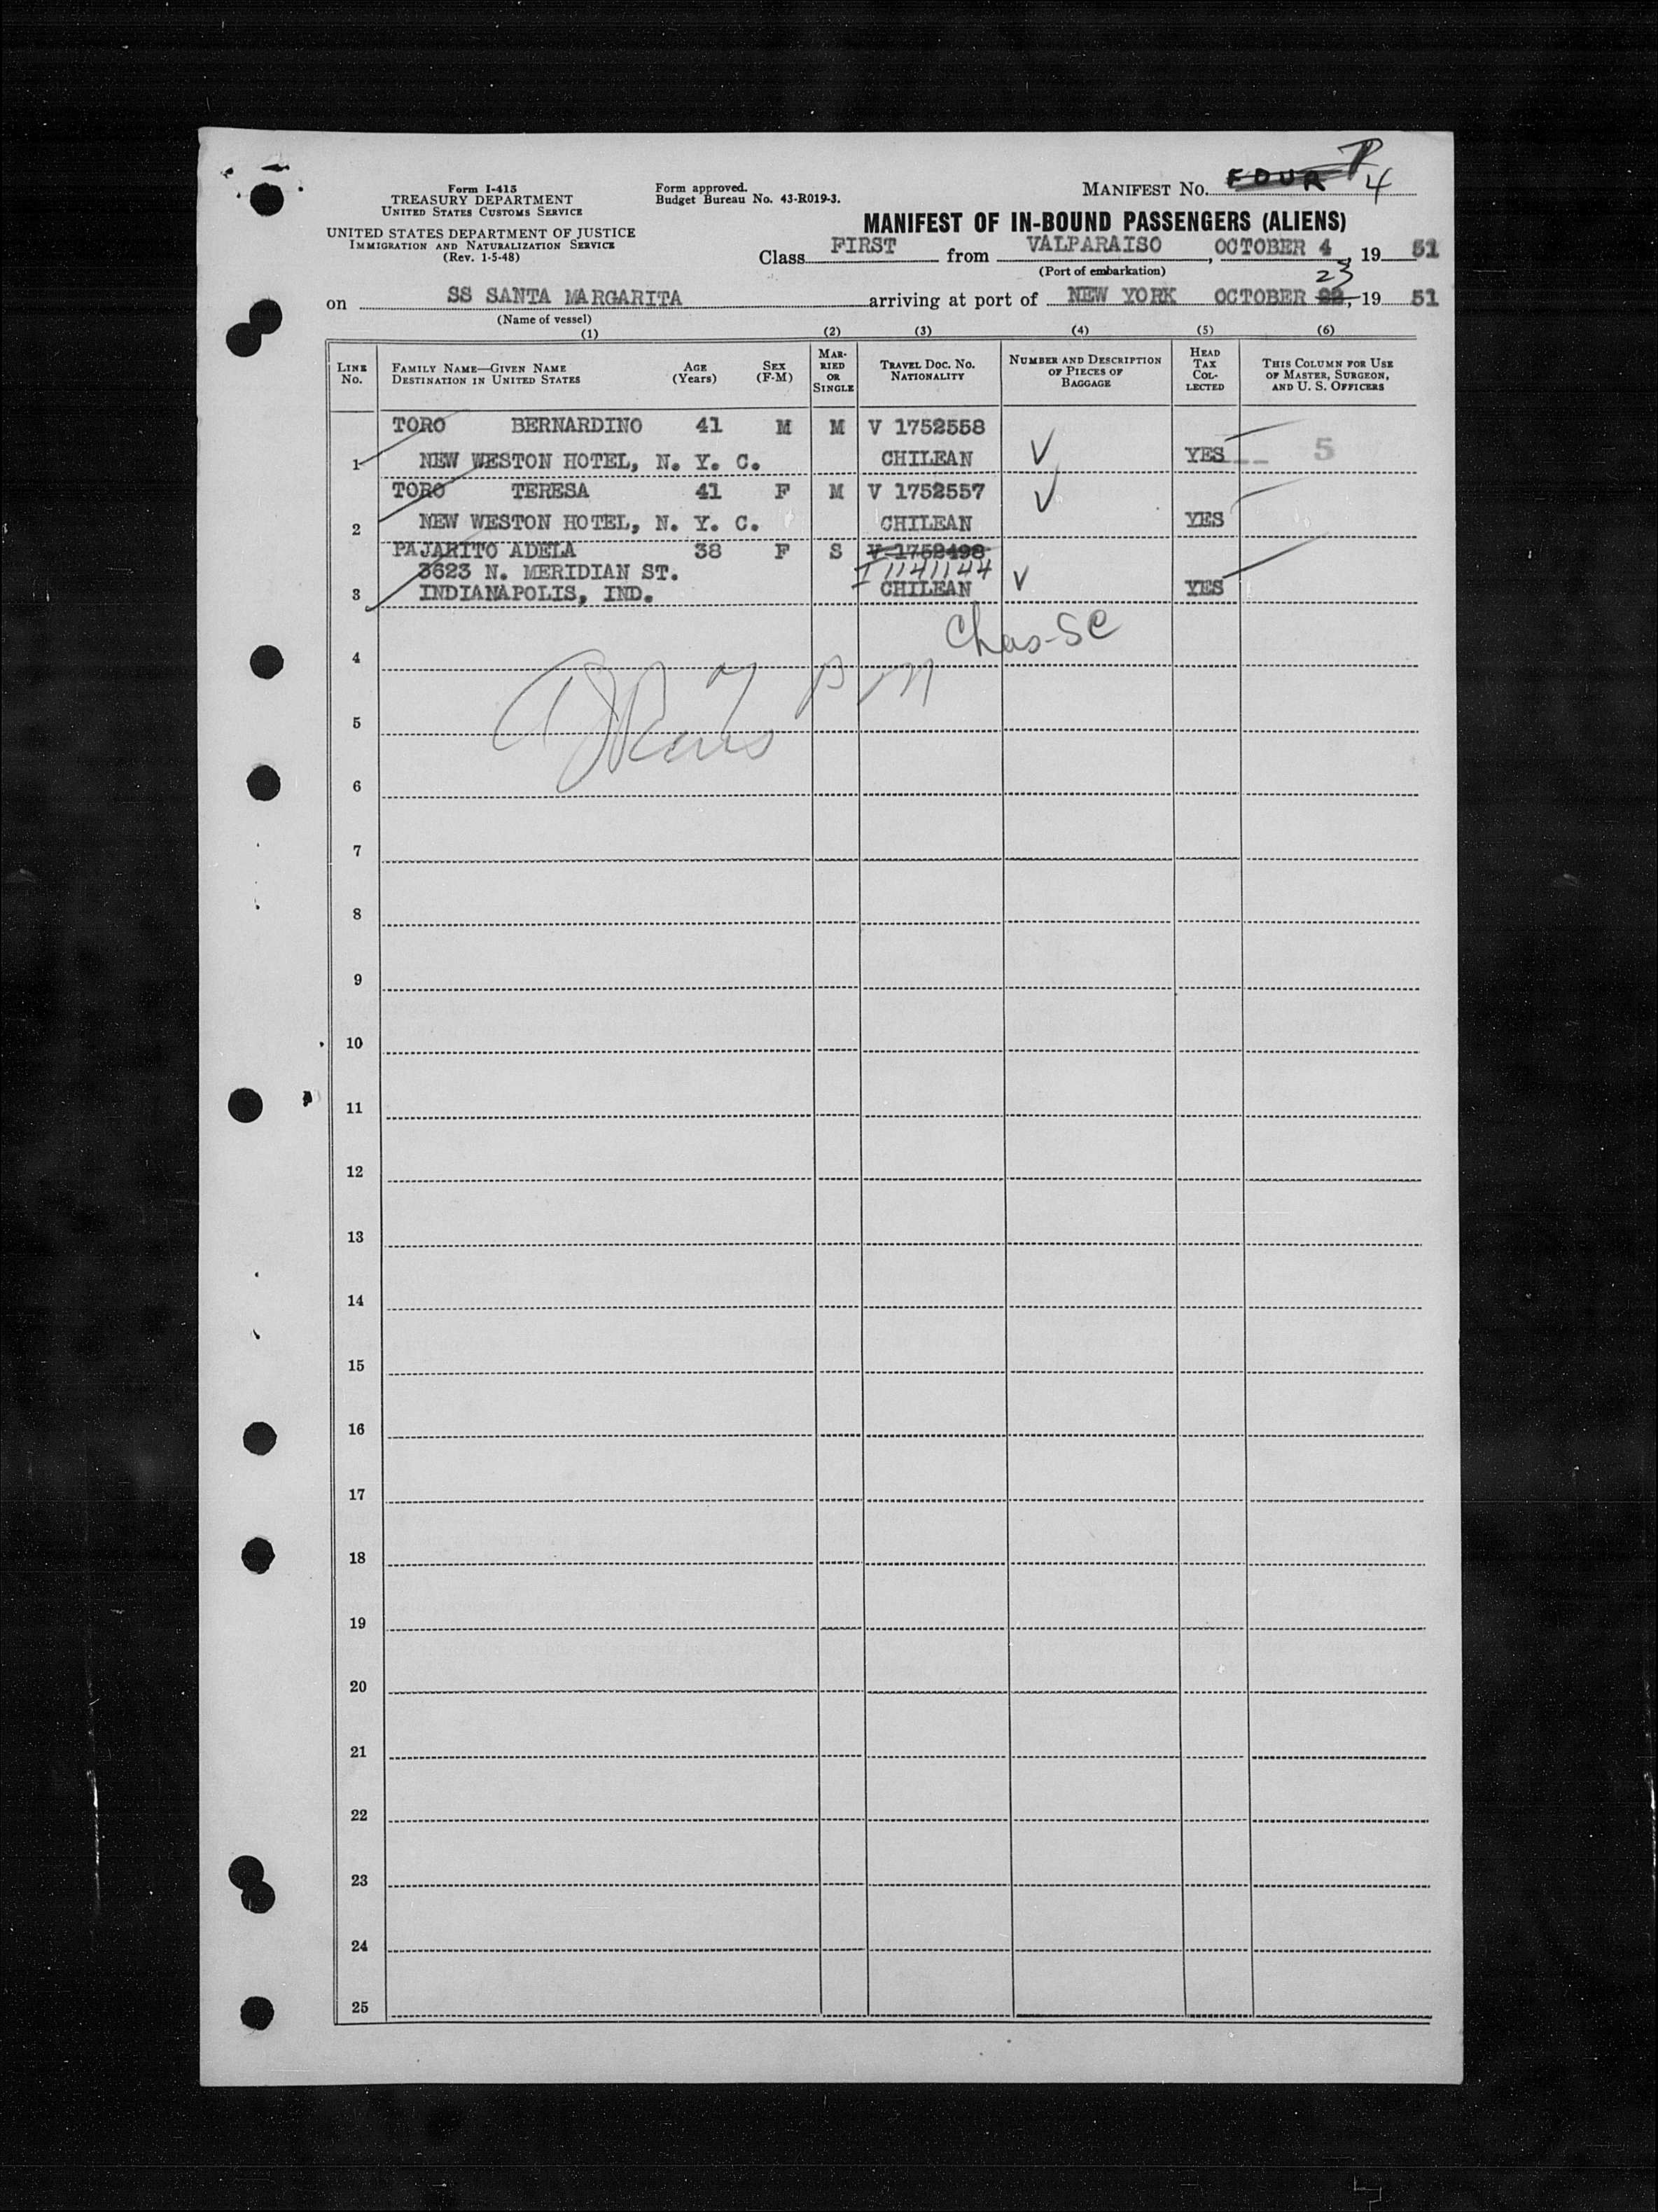 Form I-415
TREASURY DEPARTMENT
UNITED STATES CUSTOMS SERVICE
UNITED STATES DEPARTMENT OF JUSTICE
IMMIGRATION AND NATURALIZATION SERVICE
(Rev. 1-5-48)
Form approved.
Budget Bureau No. 43-R019-3.
MANIFEST No. FOUR P 4
MANIFEST OF IN-BOUND PASSENGERS (ALIENS)
Class FIRST from VALPARAISO, OCTOBER 4, 19 51
(Port of embarkation)
23
on SS SANTA MARGARITA arriving at port of NEW YORK OCTOBER 22, 19 51
(Name of vessel)
(1) (2) (3) (4) (5) (6)
LINE No. FAMILY NAME—GIVEN NAME DESTINATION IN UNITED STATES AGE (Years) SEX (F-M) MARRIED OR SINGLE TRAVEL DOC. NO. NATIONALITY NUMBER AND DESCRIPTION OF PIECES OF BAGGAGE HEAD TAX COLLECTED THIS COLUMN FOR USE OF MASTER, SURGEON, AND U. S. OFFICERS
TORO BERNARDINO 41 M M V 1752558
1 NEW WESTON HOTEL, N. Y. C. CHILEAN YES 5
TORO TERESA 41 F M V 1752557
2 NEW WESTON HOTEL, N. Y. C. CHILEAN YES
PAJARITO ADELA 38 F S V 1752498
3623 N. MERIDIAN ST. I 1141144
3 INDIANAPOLIS, IND. CHILEAN YES
Chas-SC
4
5
6
7
8
9
10
11
12
13
14
15
16
17
18
19
20
21
22
23
24
25